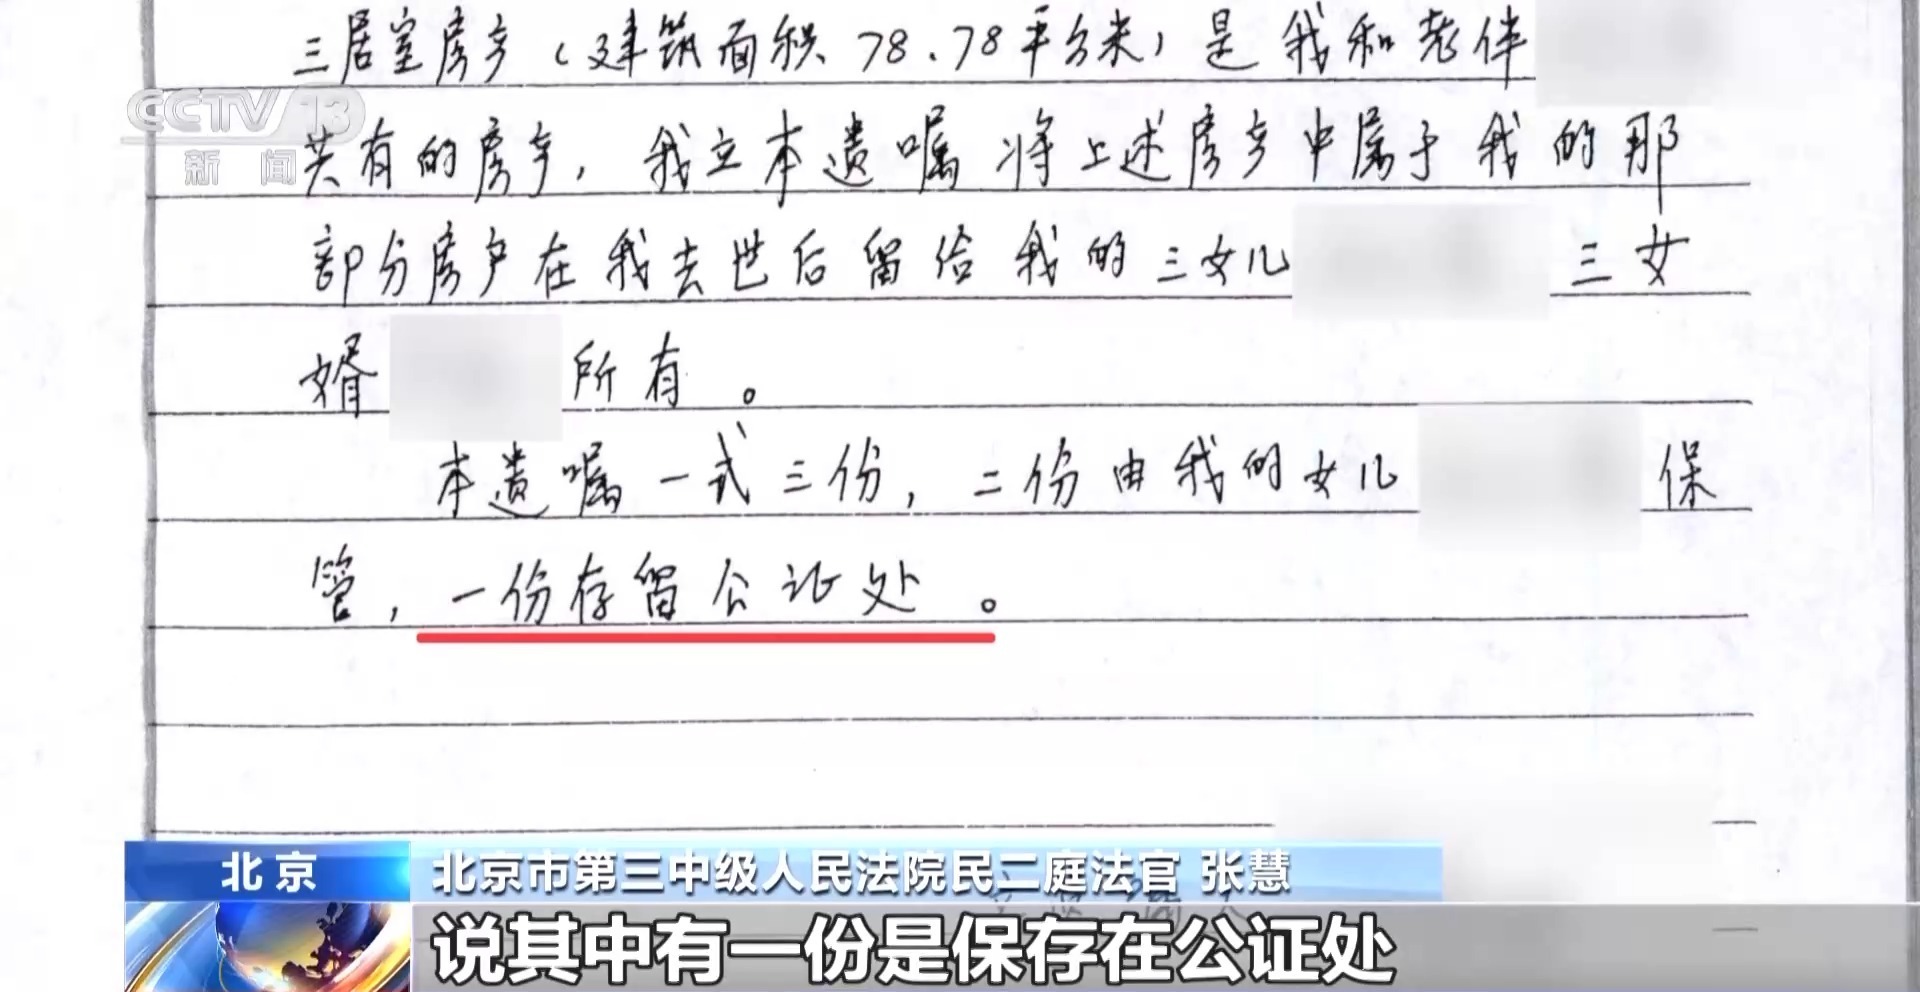 三居室房产(建筑面积78.78平方米)是我和老伴
共有的房产,我立本遗嘱将上述房产中属于我的那
部分房产在我去世后留给我的三女儿 三女
婿 所有。
本遗嘱一式三份,二份由我的女儿 保
管,一份存留公证处。
CCTV 13
新闻
北京
北京市第三中级人民法院民二庭法官 张慧
说其中有一份是保存在公证处